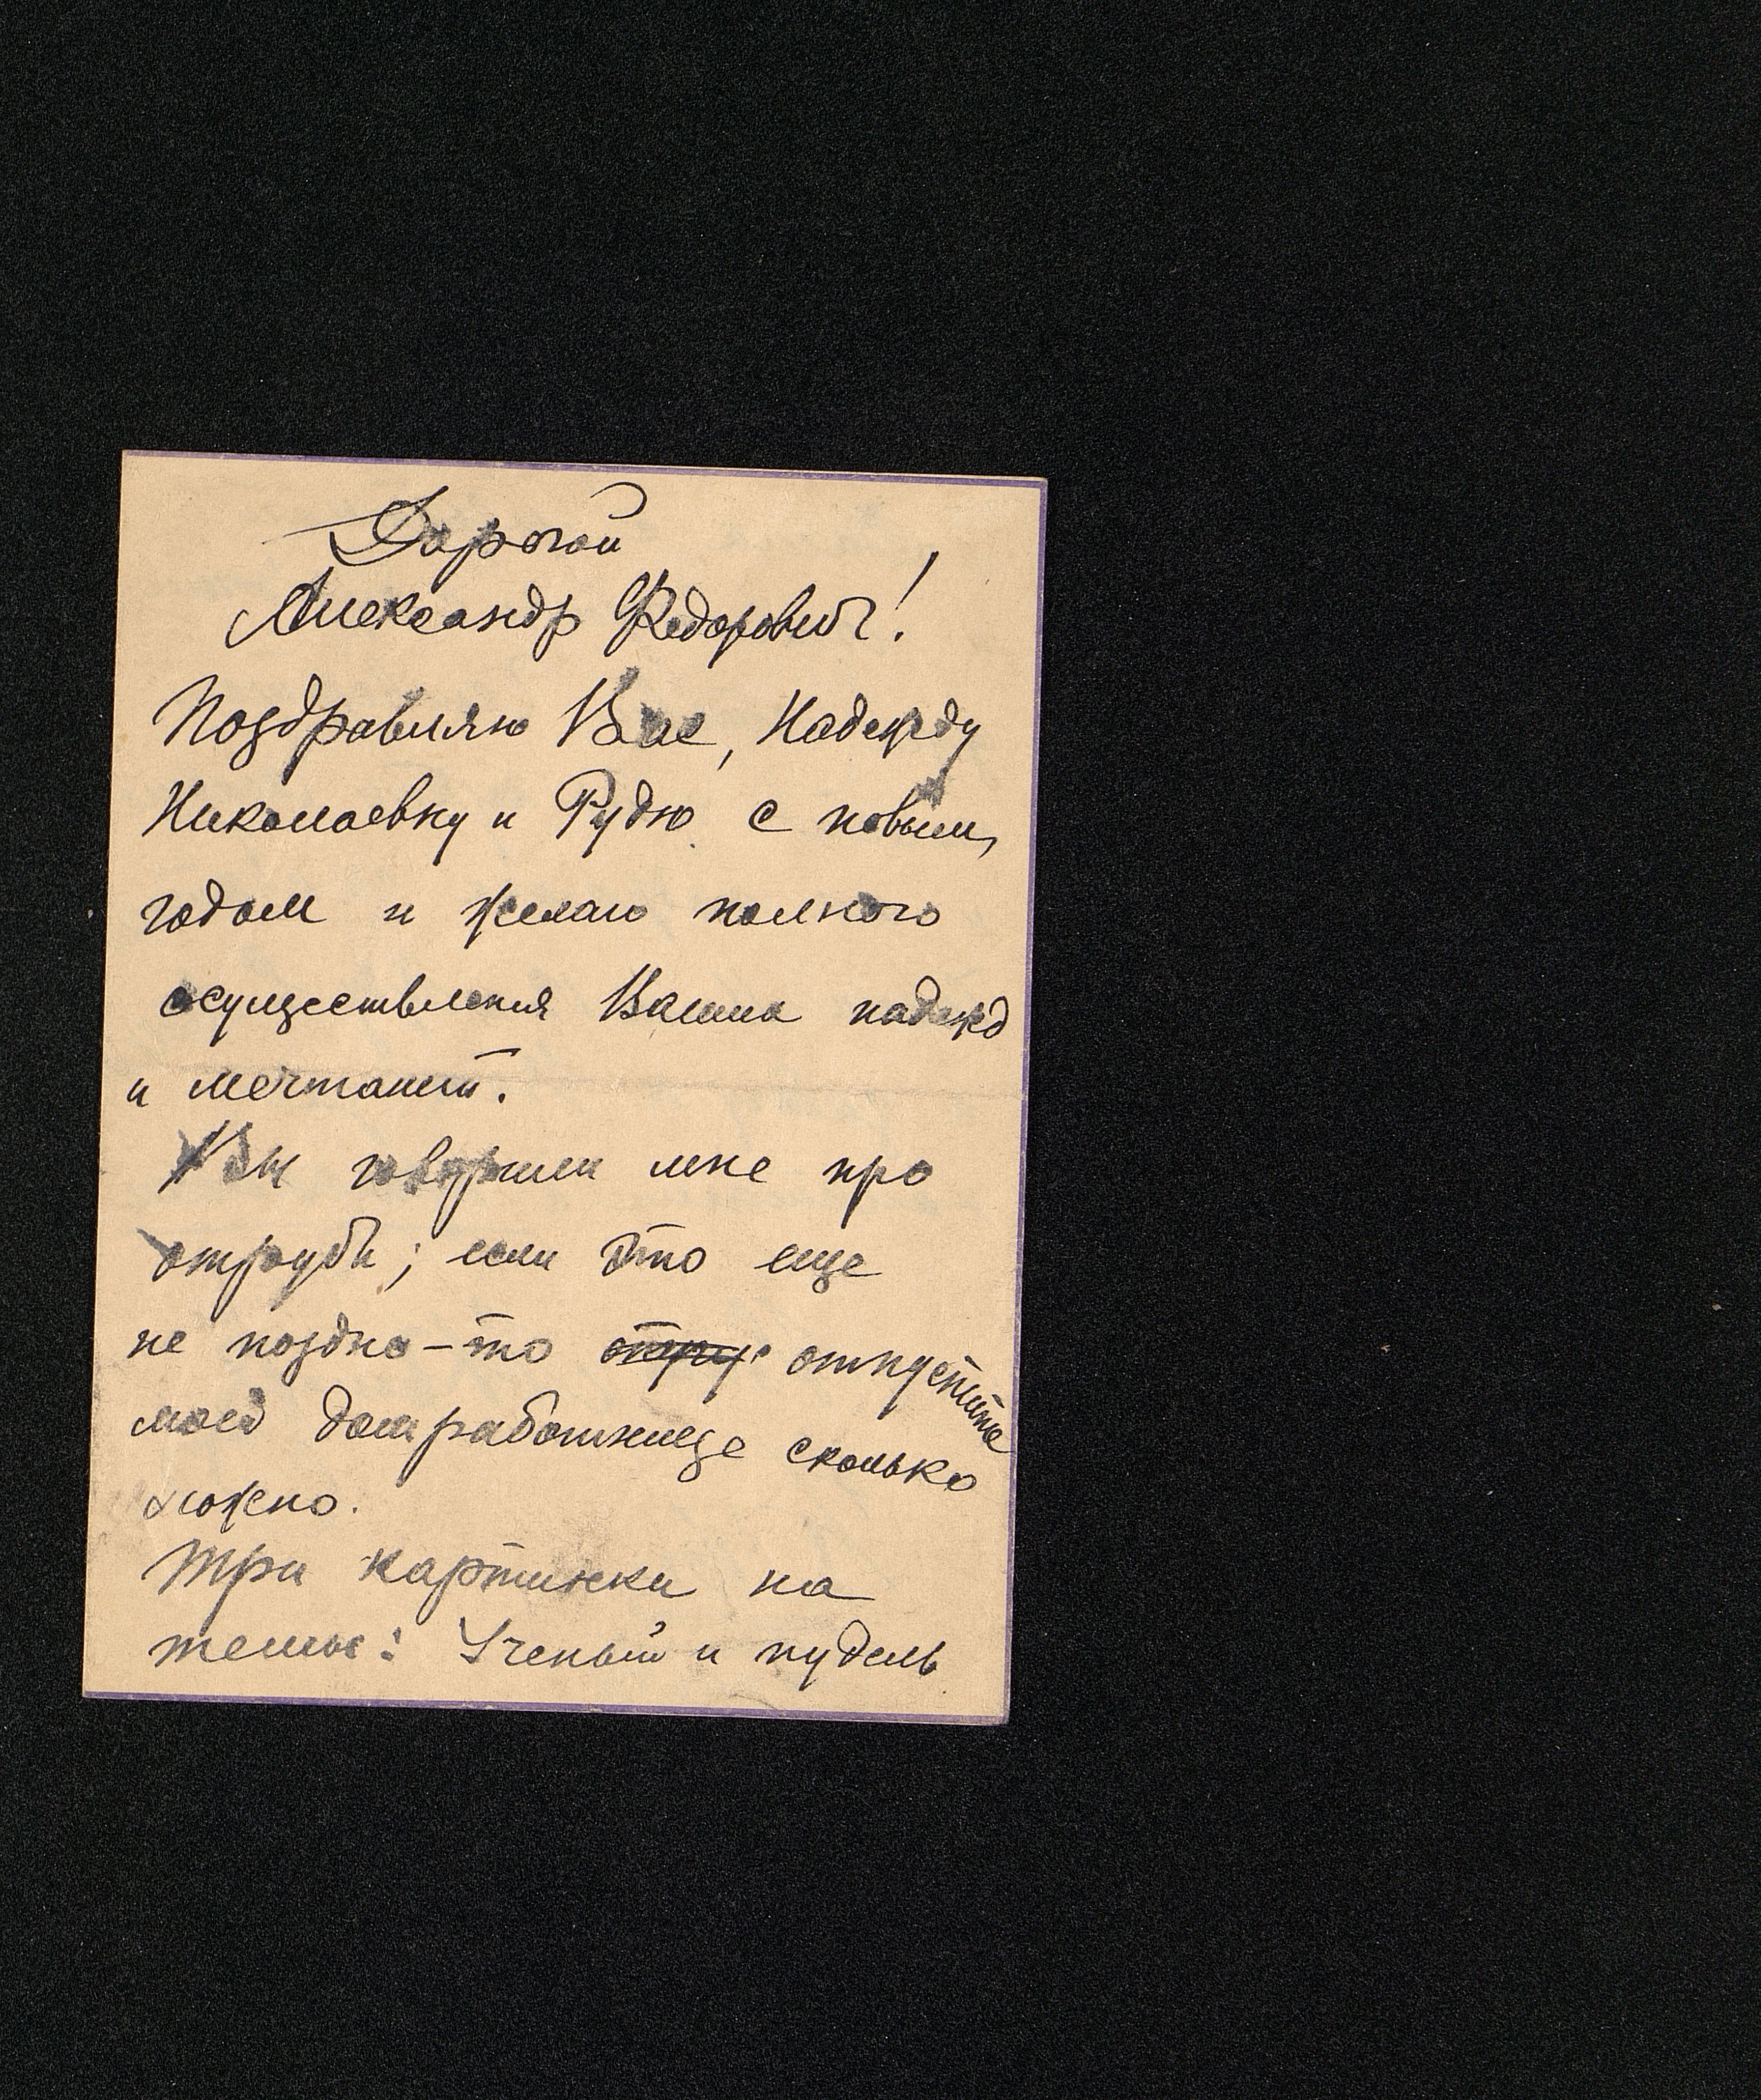 Дорогой
Александр Федорович!
Поздравляю Вас, Надежду
Николаевну и Рудю с новым
годом и желаю полного
осуществления Ваших надежд
и мечтаний.
Вы говорили мне про
отруби; если это еще
не поздно - то отпустите
моей домработнице сколько
можно.
Три картинки на
темы: Ученый и пудель